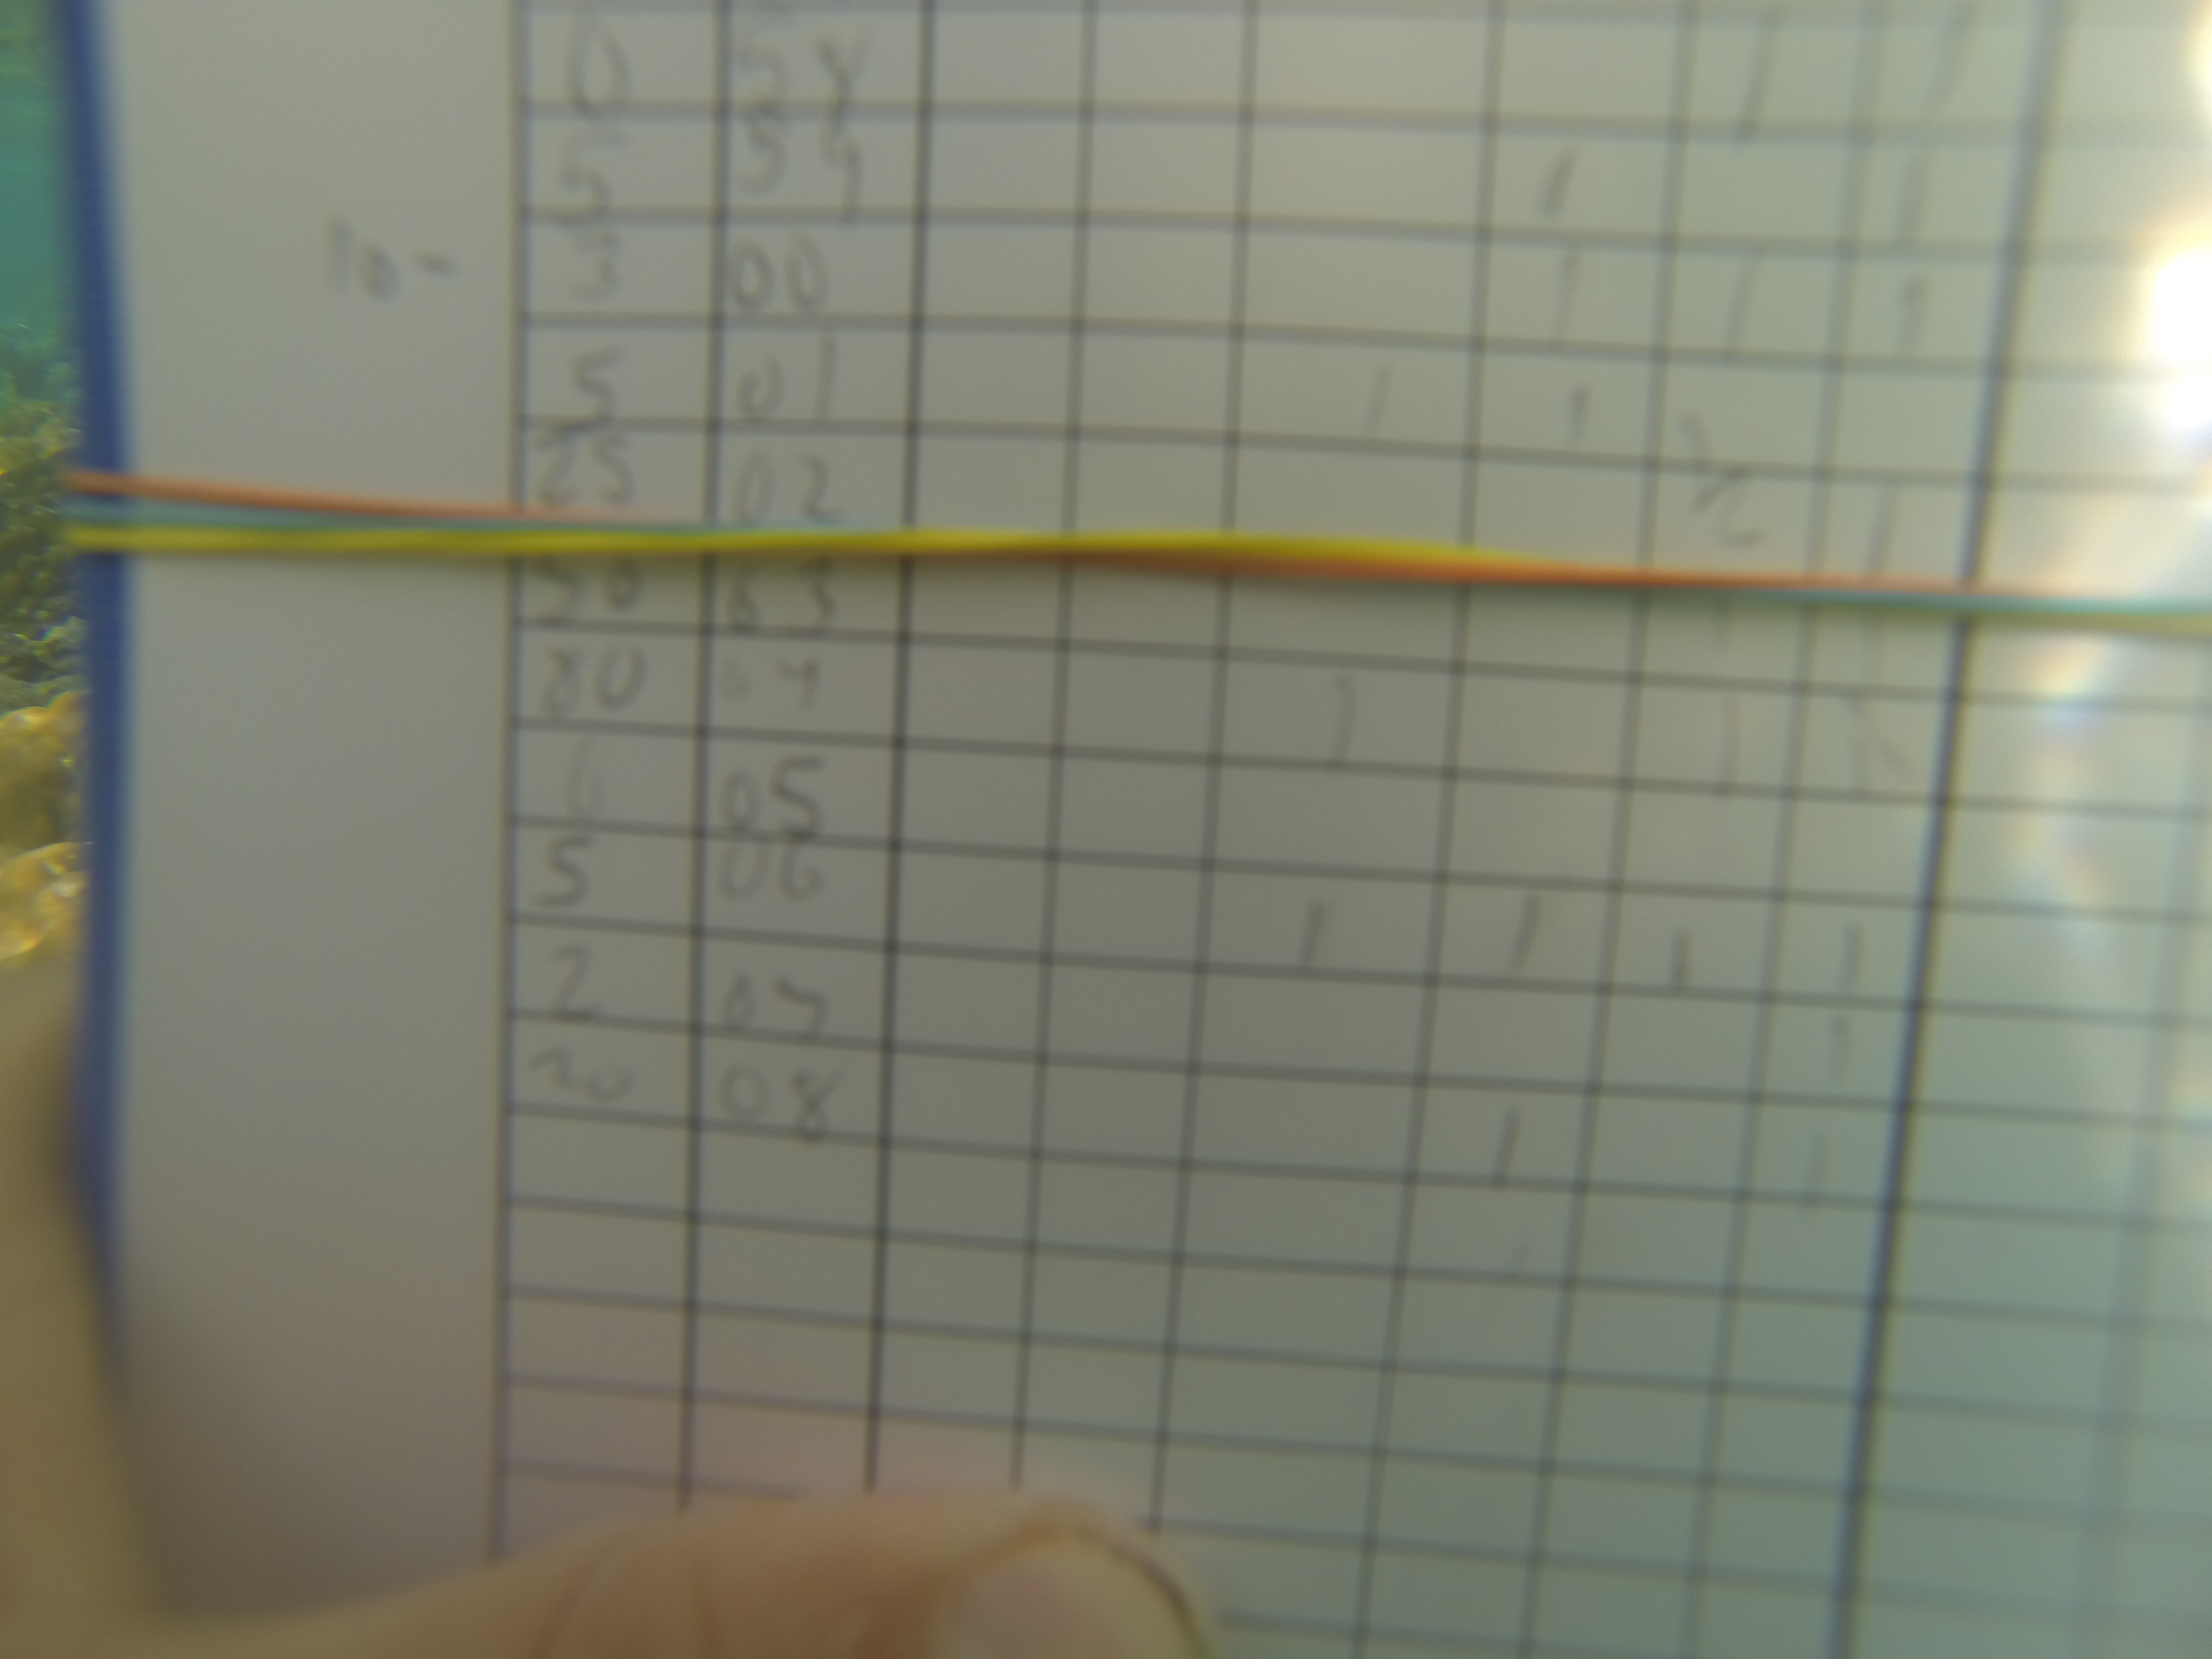 0 58 1 1
5 59 1 1
10- 3 00 1 1 1
5 01 1 1 2
25 02 1
30 03 1
80 04 1 1 2
6 05
5 06 1 1 1 1
2 07 1
20 08 1 1